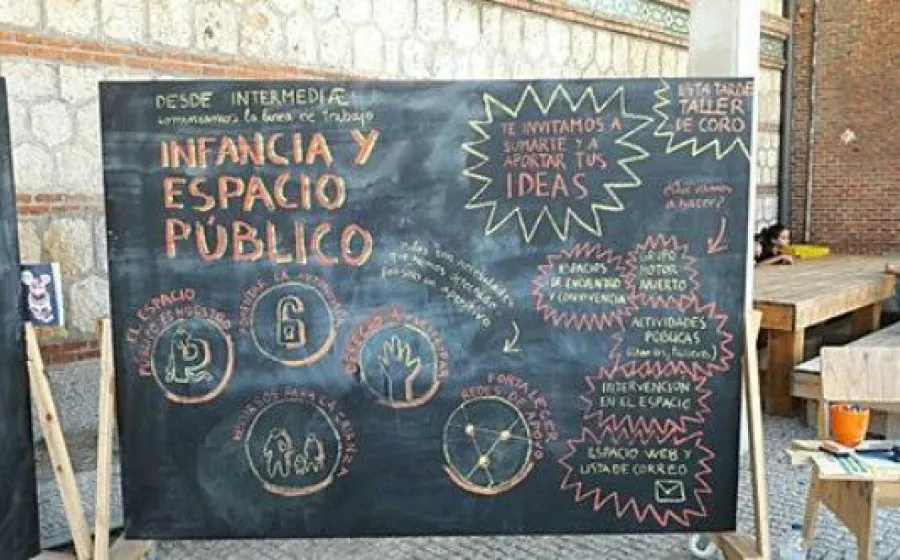 DESDE INTERMEDIÆ
comenzamos la línea de trabajo
INFANCIA Y
ESPACIO
PÚBLICO
TE INVITAMOS A
SUMARTE Y A
APORTAR TUS
IDEAS
ESTA TARDE
TALLER
DE CORO
¿Qué vamos
a hacer?
ESPACIOS
DE ENCUENTRO
Y CONVIVENCIA
GRUPO
MOTOR
ABIERTO
ACTIVIDADES
PÚBLICAS
INTERVENCIÓN
EN EL ESPACIO
ESPACIO WEB Y
LISTA DE CORREO
EL ESPACIO
PÚBLICO ES NUESTRO
DERECHO A
RECURSOS PARA LA CRIANZA
FORTALECER
REDES DE APOYO